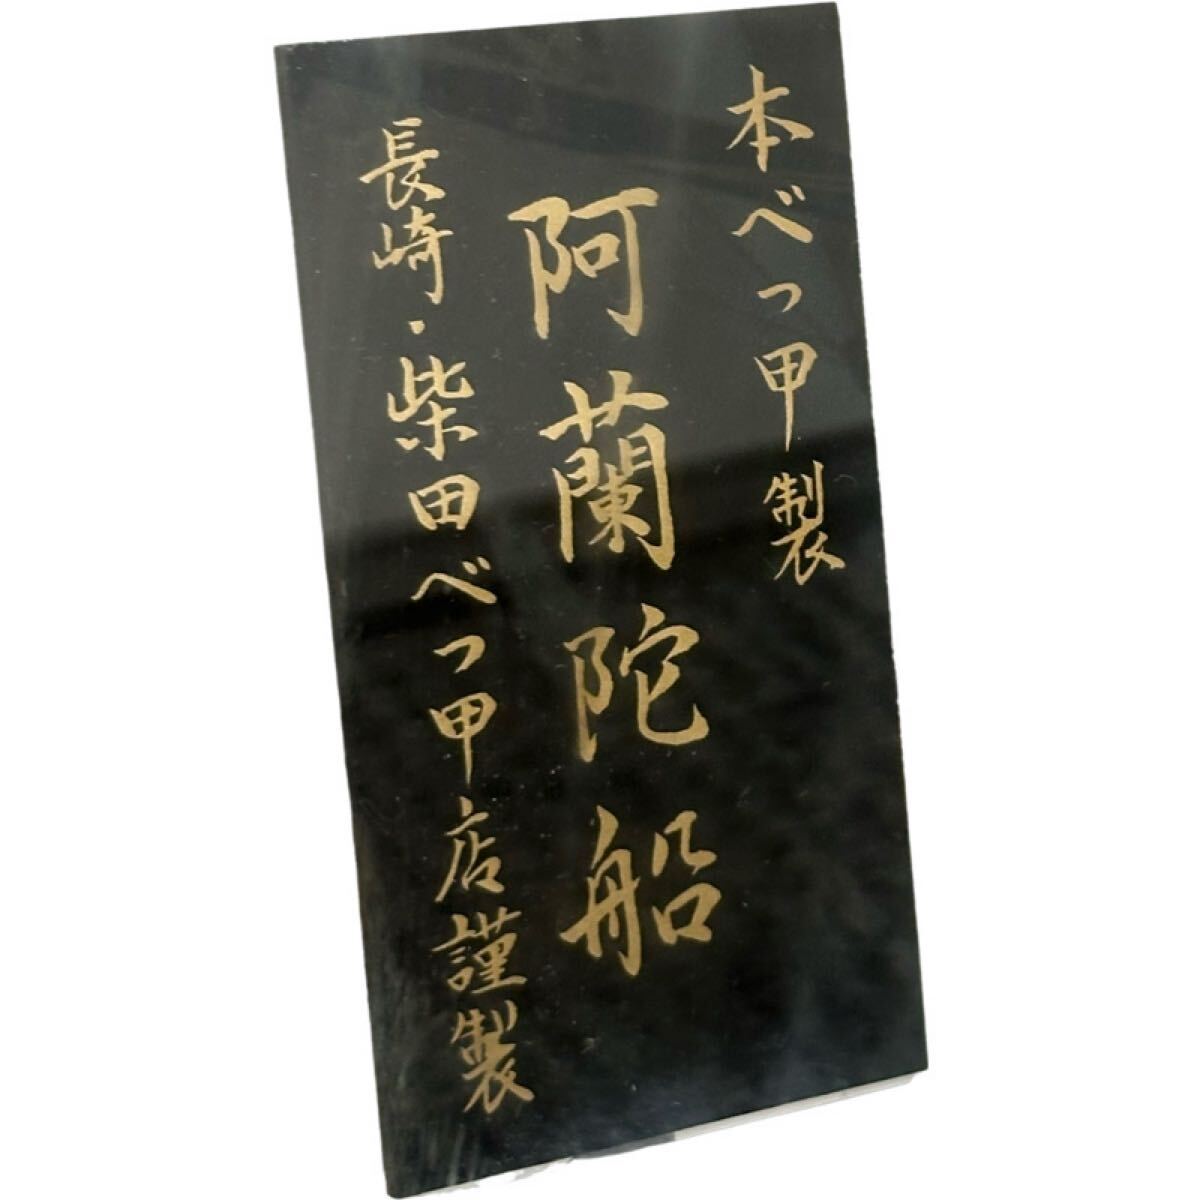 本べっ甲製
阿蘭陀船
長崎・柴田べっ甲店謹製